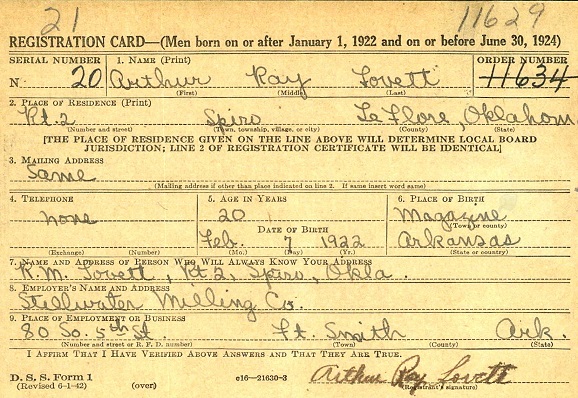 21 11629
REGISTRATION CARD—(Men born on or after January 1, 1922 and on or before June 30, 1924)
SERIAL NUMBER 1. NAME (Print) ORDER NUMBER
N 20 Arthur Ray Lovett 11634
(First) (Middle) (Last)
2. PLACE OF RESIDENCE (Print)
Rt. 2 Spiro Le Flore, Oklahom
(Number and street) (Town, township, village, or city) (County) (State)
[THE PLACE OF RESIDENCE GIVEN ON THE LINE ABOVE WILL DETERMINE LOCAL BOARD
JURISDICTION; LINE 2 OF REGISTRATION CERTIFICATE WILL BE IDENTICAL]
3. MAILING ADDRESS
Same
(Mailing address if other than place indicated on line 2. If same insert word same)
4. TELEPHONE 5. AGE IN YEARS 6. PLACE OF BIRTH
none 20 Magazine
DATE OF BIRTH (Town or county)
Feb. 7 1922 Arkansas
(Exchange) (Number) (Mo.) (Day) (Yr.) (State or country)
7. NAME AND ADDRESS OF PERSON WHO WILL ALWAYS KNOW YOUR ADDRESS
R.M. Lovett, Rt 2, Spiro, Okla.
8. EMPLOYER'S NAME AND ADDRESS
Stillwater Milling Co.
9. PLACE OF EMPLOYMENT OR BUSINESS
80 So. 5th St. Ft. Smith Ark.
(Number and street or R. F. D. number) (Town) (County) (State)
I AFFIRM THAT I HAVE VERIFIED ABOVE ANSWERS AND THAT THEY ARE TRUE.
D. S. S. Form 1
(Revised 6-1-42) (over) e16—21630-3 Arthur Ray Lovett
(Registrant's signature)